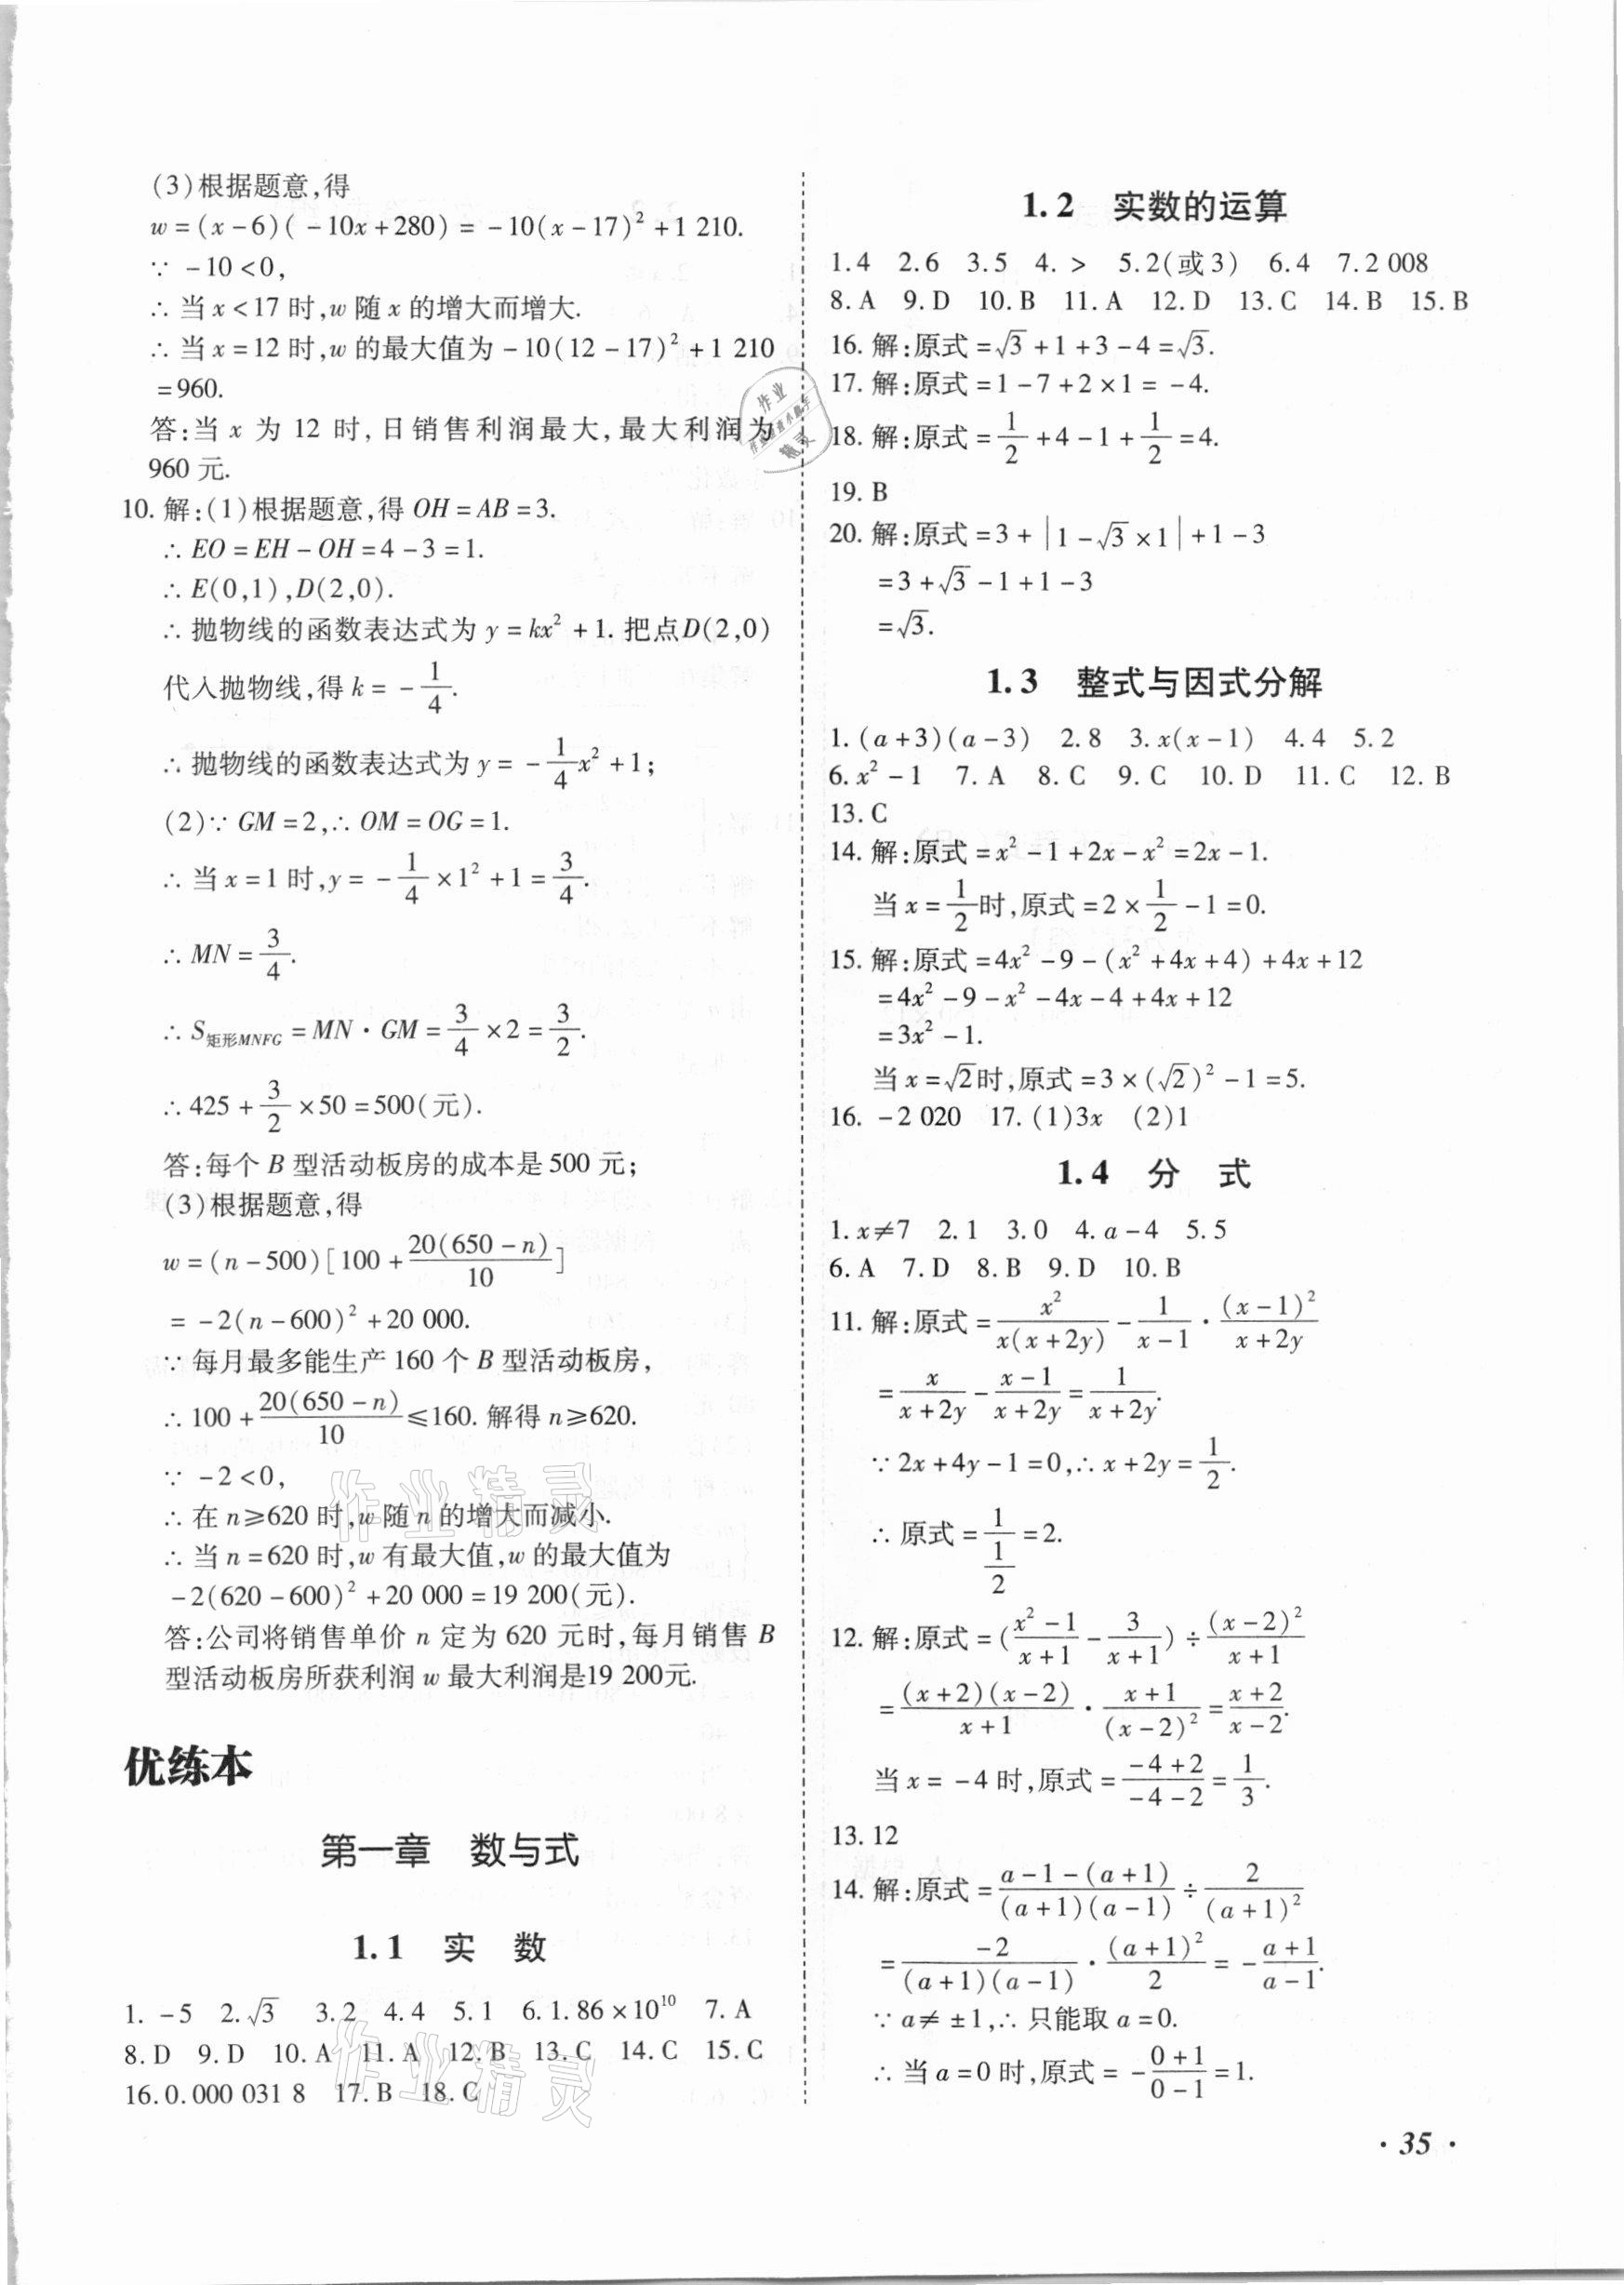 (3)根据题意,得
w=(x-6)(-10x+280)=-10(x-17)²+1 210.
∵ -10<0,
∴ 当 x<17 时,w 随 x 的增大而增大.
∴ 当 x=12 时,w 的最大值为 -10(12-17)²+1 210
=960.
答:当 x 为 12 时,日销售利润最大,最大利润为
960 元.
10. 解:(1)根据题意,得 OH=AB=3.
∴ EO=EH-OH=4-3=1.
∴ E(0,1),D(2,0).
∴ 抛物线的函数表达式为 y=kx²+1. 把点D(2,0)
代入抛物线,得 k=-1/4.
∴ 抛物线的函数表达式为 y=-1/4x²+1;
(2)∵ GM=2,∴ OM=OG=1.
∴ 当 x=1 时,y=-1/4×1²+1=3/4.
∴ MN=3/4.
∴ S矩形MNFG=MN·GM=3/4×2=3/2.
∴ 425+3/2×50=500(元).
答:每个 B 型活动板房的成本是 500 元;
(3)根据题意,得
w=(n-500)[100+20(650-n)/10]
=-2(n-600)²+20 000.
∵ 每月最多能生产 160 个 B 型活动板房,
∴ 100+20(650-n)/10≤160. 解得 n≥620.
∵ -2<0,
∴ 在 n≥620 时,w 随 n 的增大而减小.
∴ 当 n=620 时,w 有最大值,w 的最大值为
-2(620-600)²+20 000=19 200(元).
答:公司将销售单价 n 定为 620 元时,每月销售 B
型活动板房所获利润 w 最大利润是19 200元.
优练本
第一章 数与式
1.1 实 数
1. -5 2.√3 3.2 4.4 5.1 6.1.86×10¹⁰ 7.A
8.D 9.D 10.A 11.A 12.B 13.C 14.C 15.C
16.0.000 031 8 17.B 18.C
1.2 实数的运算
1.4 2.6 3.5 4.> 5.2(或3) 6.4 7.2 008
8.A 9.D 10.B 11.A 12.D 13.C 14.B 15.B
16. 解:原式=√3+1+3-4=√3.
17. 解:原式=1-7+2×1=-4.
18. 解:原式=1/2+4-1+1/2=4.
19. B
20. 解:原式=3+|1-√3×1|+1-3
=3+√3-1+1-3
=√3.
1.3 整式与因式分解
1.(a+3)(a-3) 2.8 3.x(x-1) 4.4 5.2
6.x²-1 7.A 8.C 9.C 10.D 11.C 12.B
13.C
14. 解:原式=x²-1+2x-x²=2x-1.
当 x=1/2时,原式=2×1/2-1=0.
15. 解:原式=4x²-9-(x²+4x+4)+4x+12
=4x²-9-x²-4x-4+4x+12
=3x²-1.
当 x=√2时,原式=3×(√2)²-1=5.
16. -2 020 17.(1)3x (2)1
1.4 分 式
1.x≠7 2.1 3.0 4.a-4 5.5
6.A 7.D 8.B 9.D 10.B
11. 解:原式=x²/x(x+2y)-1/(x-1)·(x-1)²/(x+2y)
=x/(x+2y)-(x-1)/(x+2y)=1/(x+2y).
∵ 2x+4y-1=0,∴ x+2y=1/2.
∴ 原式=1/(1/2)=2.
12. 解:原式=((x²-1)/(x+1)-3/(x+1))÷(x-2)²/(x+1)
=(x+2)(x-2)/(x+1)·(x+1)/(x-2)²=(x+2)/(x-2).
当 x=-4 时,原式=(-4+2)/(-4-2)=1/3.
13.12
14. 解:原式=(a-1-(a+1))/((a+1)(a-1))÷2/(a+1)²
=-2/((a+1)(a-1))·(a+1)²/2=-(a+1)/(a-1).
∵ a≠±1,∴ 只能取 a=0.
∴ 当 a=0 时,原式=-(0+1)/(0-1)=1.
· 35 ·
作业精灵
作业精灵